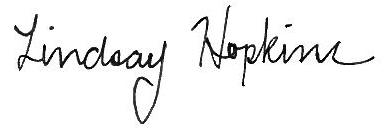 Lindsay Hopkins